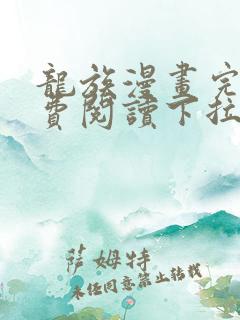 龍族漫畫完
費閱讀下拉
薩姆特
未經同意禁止轉載